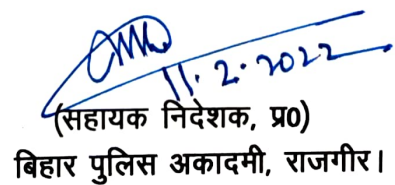 11.2.2022
(सहायक निदेशक, प्र0)
बिहार पुलिस अकादमी, राजगीर।